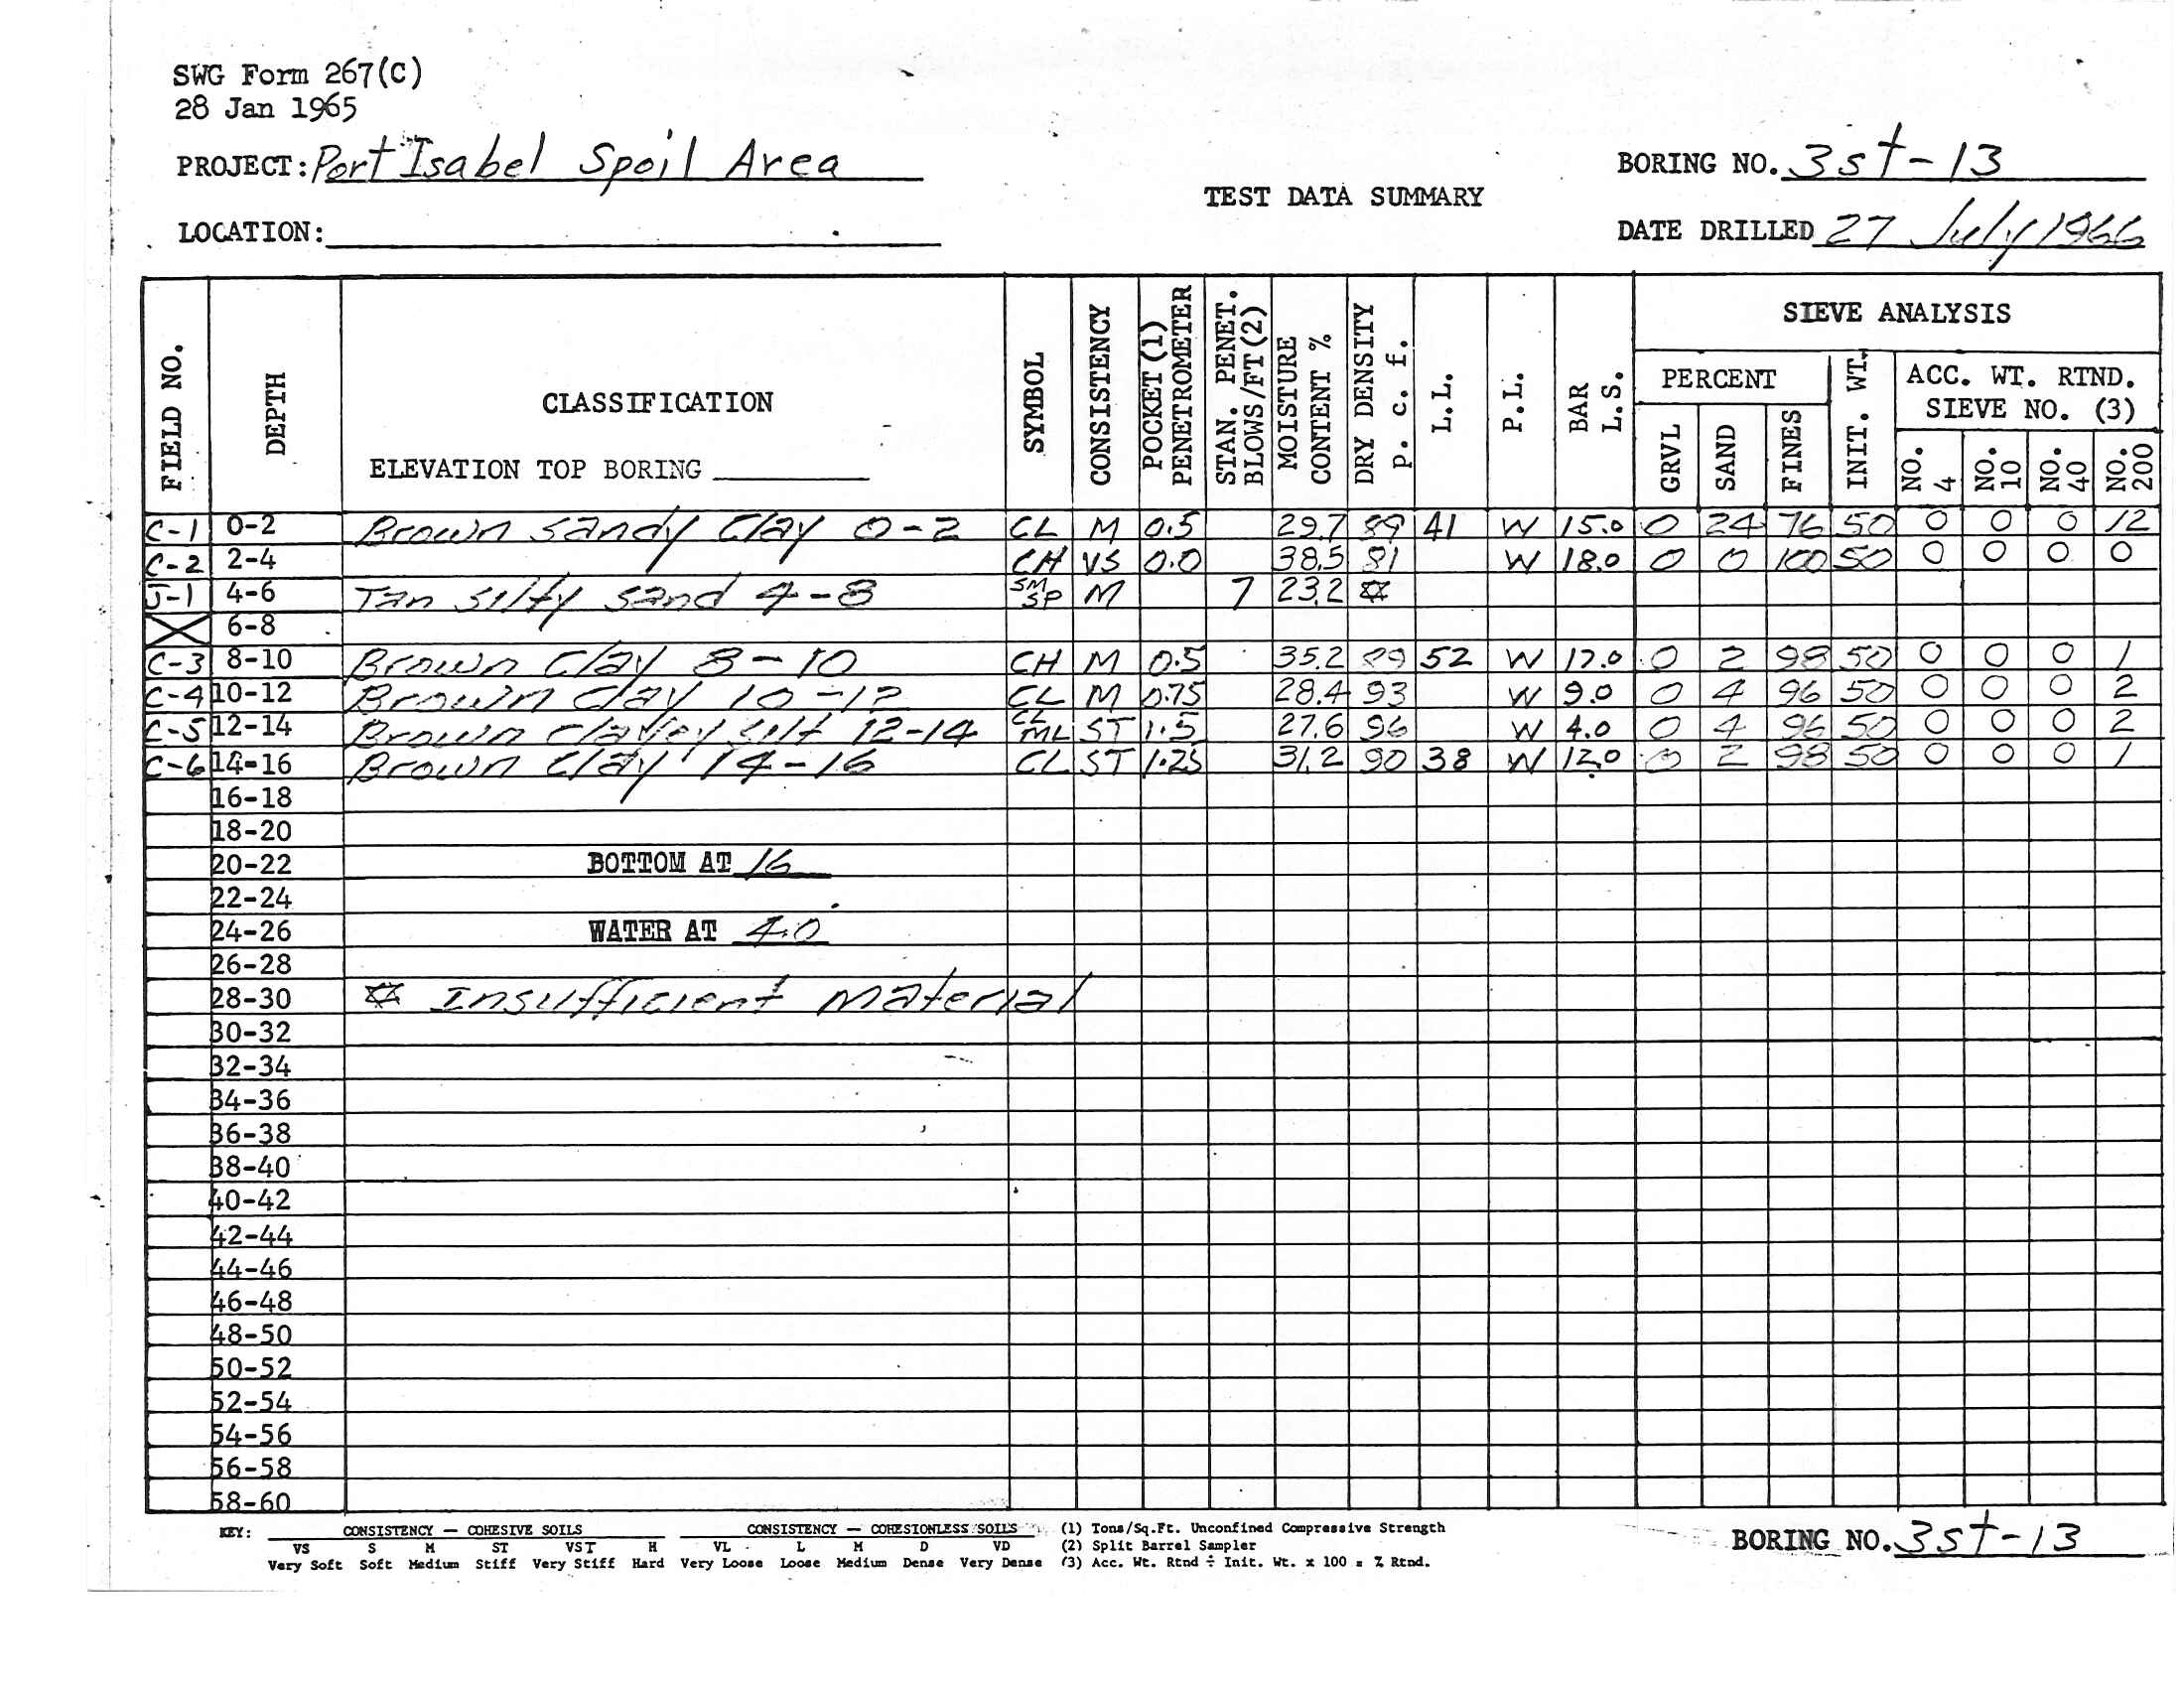 SWG Form 267(C)
28 Jan 1965
PROJECT: Port Isabel Spoil Area
BORING NO. 3st-13
TEST DATA SUMMARY
LOCATION:
DATE DRILLED 27 July 1966
FIELD NO. DEPTH CLASSIFICATION SYMBOL CONSISTENCY POCKET (1) PENETROMETER STAN. PENET. BLOWS/FT (2) MOISTURE CONTENT % DRY DENSITY p. c. f. L.L. P.L. BAR L.S. SIEVE ANALYSIS
PERCENT INIT. WT. ACC. WT. RTND. SIEVE NO. (3)
ELEVATION TOP BORING
GRVL SAND FINES NO. 4 NO. 10 NO. 40 NO. 200
C-1 0-2 Brown sandy Clay 0-2 CL M 0.5 29.7 89 41 W 15.0 0 24 76 50 0 0 0 12
C-2 2-4 CH VS 0.0 38.5 81 W 18.0 0 0 100 50 0 0 0 0
J-1 4-6 Tan silty sand 4-8 SM SP M 7 23.2 ☆
6-8
C-3 8-10 Brown Clay 8-10 CH M 0.5 35.2 52 W 17.0 0 2 98 50 0 0 0 1
C-4 10-12 Brown Clay 10-12 CL M 0.75 28.4 93 W 9.0 0 4 96 50 0 0 0 2
C-5 12-14 Brown Clayey silt 12-14 CL ML ST 1.5 27.6 96 W 4.0 0 4 96 50 0 0 0 2
C-6 14-16 Brown Clay 14-16 CL ST 1.25 31.2 90 38 W 12.0 0 2 98 50 0 0 0 1
16-18
18-20
20-22 BOTTOM AT 16
22-24
24-26 WATER AT 4.0
26-28
28-30 ☆ Insufficient Material
30-32
32-34
34-36
36-38
38-40
40-42
42-44
44-46
46-48
48-50
50-52
52-54
54-56
56-58
58-60
KEY: CONSISTENCY — COHESIVE SOILS CONSISTENCY — COHESIONLESS SOILS (1) Tons/Sq.Ft. Unconfined Compressive Strength
VS S M ST VST H VL L M D VD (2) Split Barrel Sampler
Very Soft Soft Medium Stiff Very Stiff Hard Very Loose Loose Medium Dense Very Dense (3) Acc. Wt. Rtnd ÷ Init. Wt. x 100 = % Rtnd.
BORING NO. 3st-13